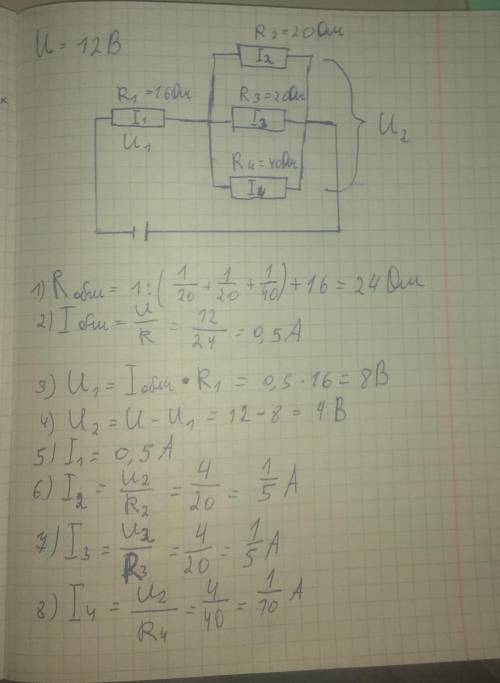 U = 12В
R₂ = 20Ом
I₂
R₁ = 16Ом
R₃ = 20Ом
I₁
I₃
U₂
U₁
R₄ = 40Ом
I₄
1) Rобщ = 1 : (1/20 + 1/20 + 1/40) + 16 = 24 Ом
2) Iобщ = U/R = 12/24 = 0,5А
3) U₁ = Iобщ • R₁ = 0,5 · 16 = 8В
4) U₂ = U - U₁ = 12 - 8 = 4В
5) I₁ = 0,5А
6) I₂ = U₂/R₂ = 4/20 = 1/5 А
7) I₃ = U₂/R₃ = 4/20 = 1/5 А
8) I₄ = U₂/R₄ = 4/40 = 1/10 А